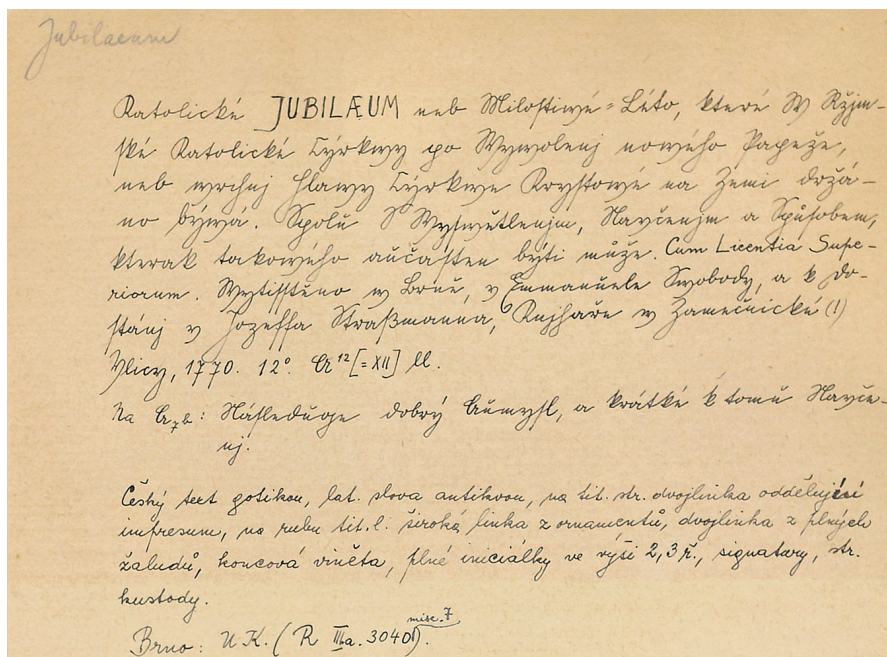 Jubilaeum
Katolické JUBILÆUM neb Milostiwé=Léto, které W Ržjm-
ské Katolické Cýrkwy po Wywolenj nowého Papeže,
neb wrchnj Hlawy Cýrkwe Krystowé na Zemi držá-
no býwá. Spolu S Wyswětlenjm, Naučenjm a Spůsobem,
kterak takowého aučasten býti může. Cum Licentia Supe-
riorum. Wytisstěno w Brně, v Emmanuele Swobody, a k do-
stánj v Jozeffa Straßmanna, Knjhaře w Zamečnické (!)
Vlicy, 1770. 12°. A¹² [= XII] ll.
Na A₇b: Následuge dobrý Aumysl, a krátké k tomu Nauče-
nj.
Český text gotikou, lat. slova antikvou, na tit. str. dvojlinka oddělující
impresum, na rubu tit. l. široká linka z ornamentů, dvojlinka z plných
žaludů, koncová viněta, plné iniciálky ve výši 2,3 ř., signatury, str.
kustody.
Brno: U.K. (R IIIa. 3040) misc. 7.